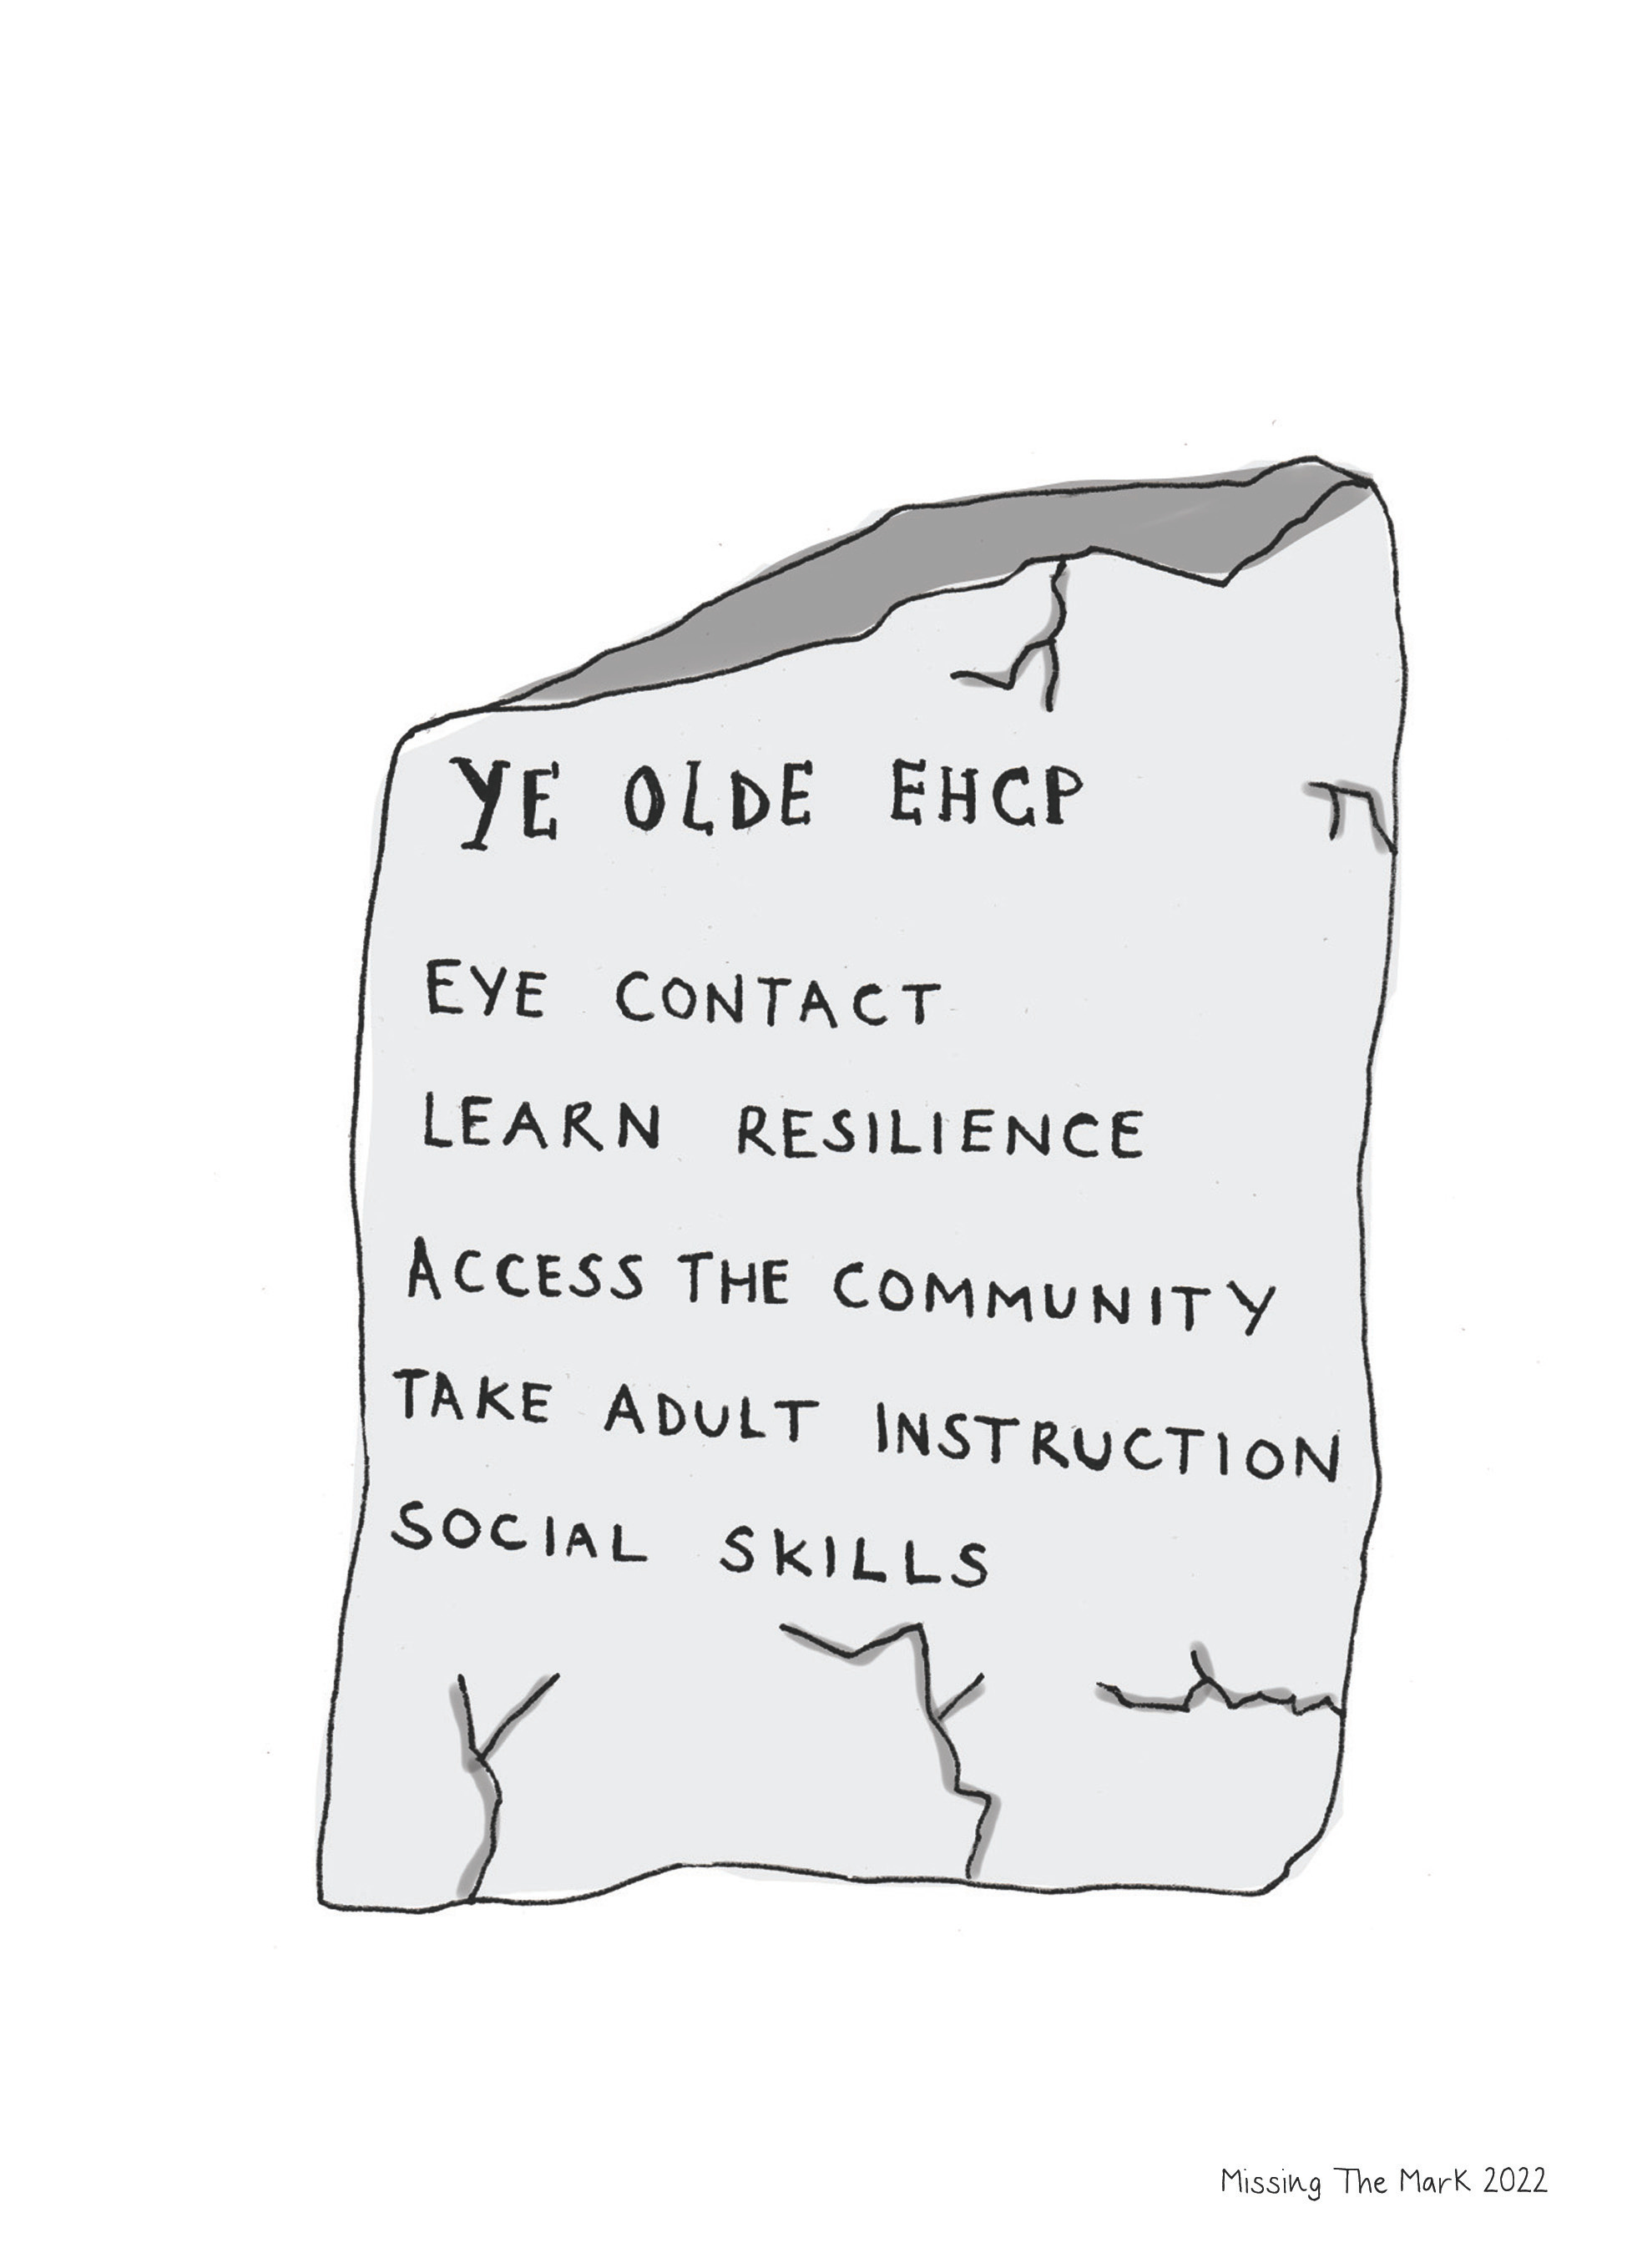 YE OLDE EHCP
EYE CONTACT
LEARN RESILIENCE
ACCESS THE COMMUNITY
TAKE ADULT INSTRUCTION
SOCIAL SKILLS
Missing The Mark 2022